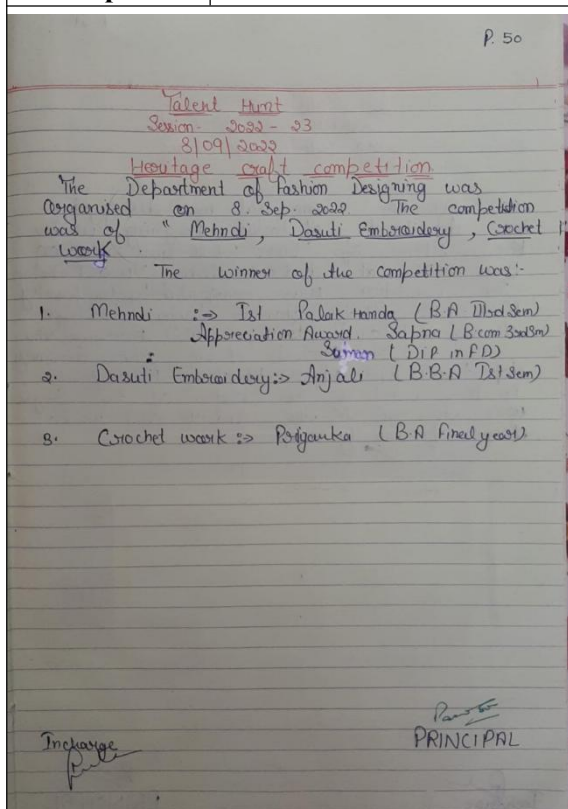 P. 50
Talent Hunt
Session - 2022 - 23
8/09/2022
Heritage craft competition
The Department of Fashion Designing was
Oorganised on 8. Sep. 2022. The competition
was of " Mehndi, Dasuti Embroidery, Crochet "
work
The winner of the competition was:-
1. Mehndi :⇒ Ist Palak Handa (BA IIIrd Sem)
Appreciation Award. Sapna (B com 3rd Sm)
: Suman (DIP in FD)
2. Dasuti Embroidery:⇒ Anjali (B.B.A Ist Sem)
3. Crochet work :⇒ Priyanka (BA Final year)
Incharge
PRINCIPAL